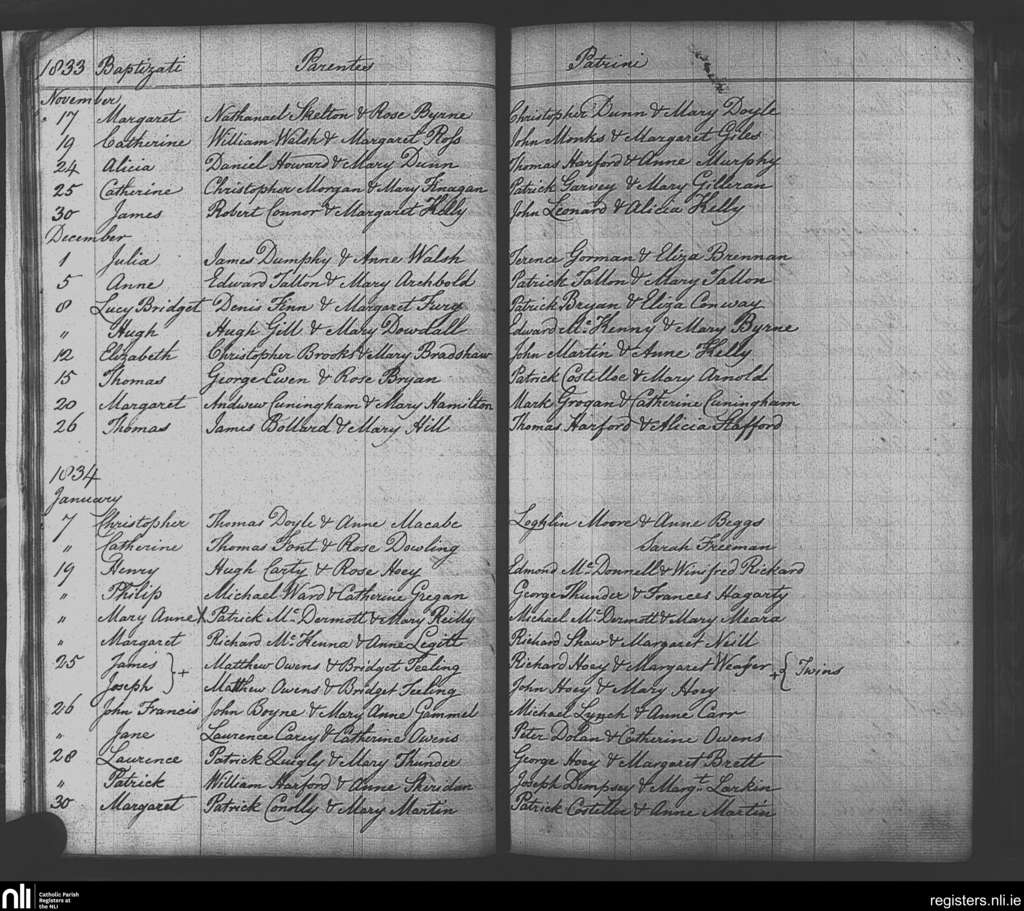 1833 Baptizati Parentes Patrini
November
17 Margaret Nathanael Skelton & Rose Byrne Christopher Dunn & Mary Doyle
19 Catherine William Walsh & Margaret Ross John Monks & Margaret Giles
24 Alicia Daniel Howard & Mary Dunn Thomas Harford & Anne Murphy
25 Catherine Christopher Morgan & Mary Finagan Patrick Garvey & Mary Gilleran
30 James Robert Connor & Margaret Kelly John Leonard & Alicia Kelly
December
1 Julia James Dumphy & Anne Walsh Terence Gorman & Eliza Brennan
5 Anne Edward Tallon & Mary Archbold Patrick Tallon & Mary Tallon
8 Lucy Bridget Denis Finn & Margaret Fury Patrick Bryan & Eliza Conway
" Hugh Hugh Gill & Mary Dowdall Edward Mc. Kenny & Mary Byrne
12 Elizabeth Christopher Brooks & Mary Bradshaw John Martin & Anne Kelly
15 Thomas George Ewen & Rose Bryan Patrick Costelloe & Mary Arnold
20 Margaret Andwew Cuningham & Mary Hamilton Mark Grogan & Catherine Cuningham
26 Thomas James Bollard & Mary Hill Thomas Harford & Alicia Stafford
1834
January
7 Christopher Thomas Doyle & Anne Macabe Loghlin Moore & Anne Beggs
" Catherine Thomas Font & Rose Dowling Sarah Freeman
19 Henry Hugh Carty & Rose Hoey Edmond Mc. Donnell & Winifred Rickard
" Philip Michael Ward & Catherine Gregan George Thunder & Frances Hagarty
" Mary Anne X Patrick Mc. Dermott & Mary Reilly Michael Mc. Dermott & Mary Meara
" Margaret Richard Mc. Kenna & Anne Legitt Richard Shaw & Margaret Neill
25 James } + Matthew Owens & Bridget Teeling Richard Hoey & Margaret Weafer + { Twins
Joseph Matthew Owens & Bridget Teeling John Hoey & Mary Hoey
26 John Francis John Boyne & Mary Anne Gammel Michael Lynch & Anne Carr
" Jane Laurence Carey & Catherine Owens Peter Dolan & Catherine Owens
28 Laurence Patrick Quigly & Mary Thunder George Hoey & Margaret Brett
" Patrick William Harford & Anne Sheridan Joseph Dempsey & Margt. Larkin
30 Margaret Patrick Conolly & Mary Martin Patrick Costelloe & Anne Martin
nli Catholic Parish
Registers at
the NLI
registers.nli.ie